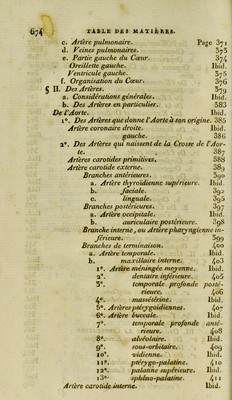 674 TABLE DES MATIÈRES.
c. Artère pulmonaire. Page 371
d. Veines pulmonaires. 373
e. Partie gauche du Cœur. 374
Oreillette gauche. Ibid.
Ventricule gauche. 375
f. Organisation du Cœur. 376
§ II. Des Artères. 379
a. Considérations générales. Ibid.
b. Des Artères en particulier. 583
De l'Aorte. Ibid.
1°. Des Artères que donne l'Aorte à son origine. 385
Artère coronaire droite. Ibid.
gauche. 386
2°. Des Artères qui naissent de la Crosse de l'Aor-
te. 387
Artères carotides primitives. 388
Artère carotide externe. 389
Branches antérieures. 390
a. Artère thyroïdienne supérieure. Ibid.
b. faciale. 392
c. linguale. 395
Branches postérieures. 397
a. Artère occipitale. Ibid.
b. auriculaire postérieure. 398
Branche interne, ou Artère pharyngienne in-
férieure. 399
Branches de terminaison. 400
a. Artère temporale. Ibid.
b. maxillaire interne. 403
1°. Artère méningée moyenne. Ibid.
2°. dentaire inférieure. 405
3°. temporale profonde posté-
rieure. 406
4°. massétérine. Ibid.
5°. Artères ptérygoïdiennes. 407
6°. Artère buccale. Ibid.
7°. temporale profonde anté-
rieure. 408
8°. alvéolaire. Ibid.
9°. sous-orbitaire. 409
10°. vidienne. Ibid.
11°. ptérygo-palatine. 410
12°. palatine supérieure. Ibid.
13°. sphéno-palatine. 411
Artère carotide interne. Ibid.